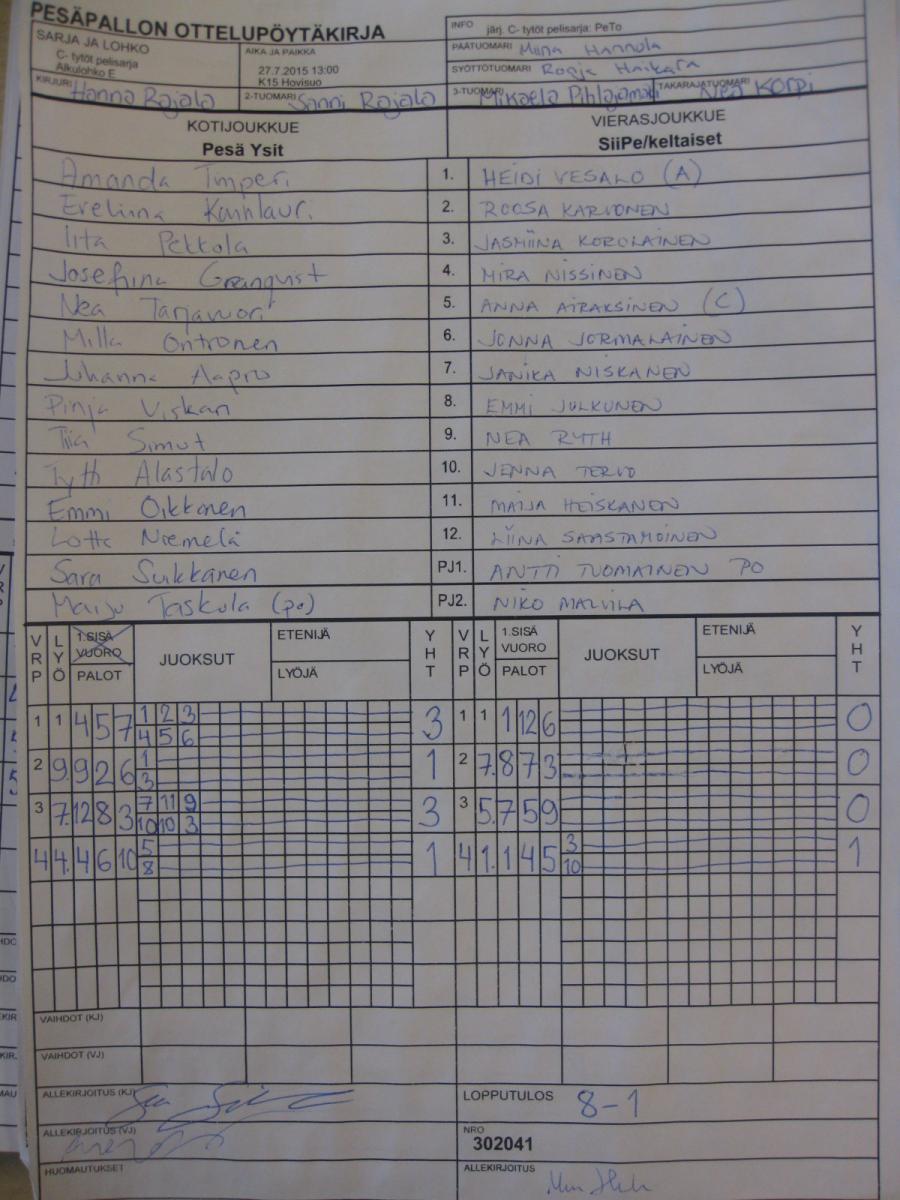 PESÄPALLON OTTELUPÖYTÄKIRJA
INFO järj. C- tytöt pelisarja: PeTo
SARJA JA LOHKO
C- tytöt pelisarja
Alkulohko E
AIKA JA PAIKKA
27.7.2015 13:00
K15 Hovisuo
PÄÄTUOMARI Miina Hannula
SYÖTTÖTUOMARI Ronja Haikara
KIRJURI Hanna Rajala
2-TUOMARI Sanni Rajala
3-TUOMARI Mikaela Pihlajamäki
TAKARAJATUOMARI Nea Korpi
KOTIJOUKKUE
Pesä Ysit
VIERASJOUKKUE
SiiPe/keltaiset
Amanda Timperi 1. HEIDI VESALO (A)
Eveliina 2. ROOSA KARVONEN
Iita Pekkola 3. JASMIINA KOROLAINEN
Josefiina Granqvist 4. MIRA NISSINEN
Nea 5. ANNA AIRAKSINEN (C)
Milla Ontronen 6. JONNA JORMALAINEN
Juhanna Aapro 7. JANIKA NISKANEN
Pinja Viskari 8. EMMI JULKUNEN
Tiia Simut 9. NEA RYTH
Tyth Alastalo 10. JENNA TERVO
Emmi Oikkonen 11. MAIJA HEISKANEN
Lotta Niemelä 12. LIINA SAASTAMOINEN
Sara Suikkanen PJ1. ANTTI TUOMAINEN PO
Maiju Taskula (po) PJ2. NIKO MALVILA
VRP LYÖ 1.SISÄ VUORO PALOT JUOKSUT ETENIJÄ LYÖJÄ YHT VRP LYÖ 1.SISÄ VUORO PALOT JUOKSUT ETENIJÄ LYÖJÄ YHT
1 1 4 5 7 1 2 3 3 1 1 1 12 6 0
4 5 6
2 9. 9 2 6 1 1 2 7. 8 7 3 0
3
3 7. 12 8 3 7 11 9 3 3 5. 7 5 9 0
10 10 3
4 4. 4 6 10 5 1 4 1. 1 4 5 3 1
8 10
VAIHDOT (KJ)
VAIHDOT (VJ)
ALLEKIRJOITUS (KJ)
LOPPUTULOS 8-1
ALLEKIRJOITUS (VJ)
NRO
302041
HUOMAUTUKSET
ALLEKIRJOITUS